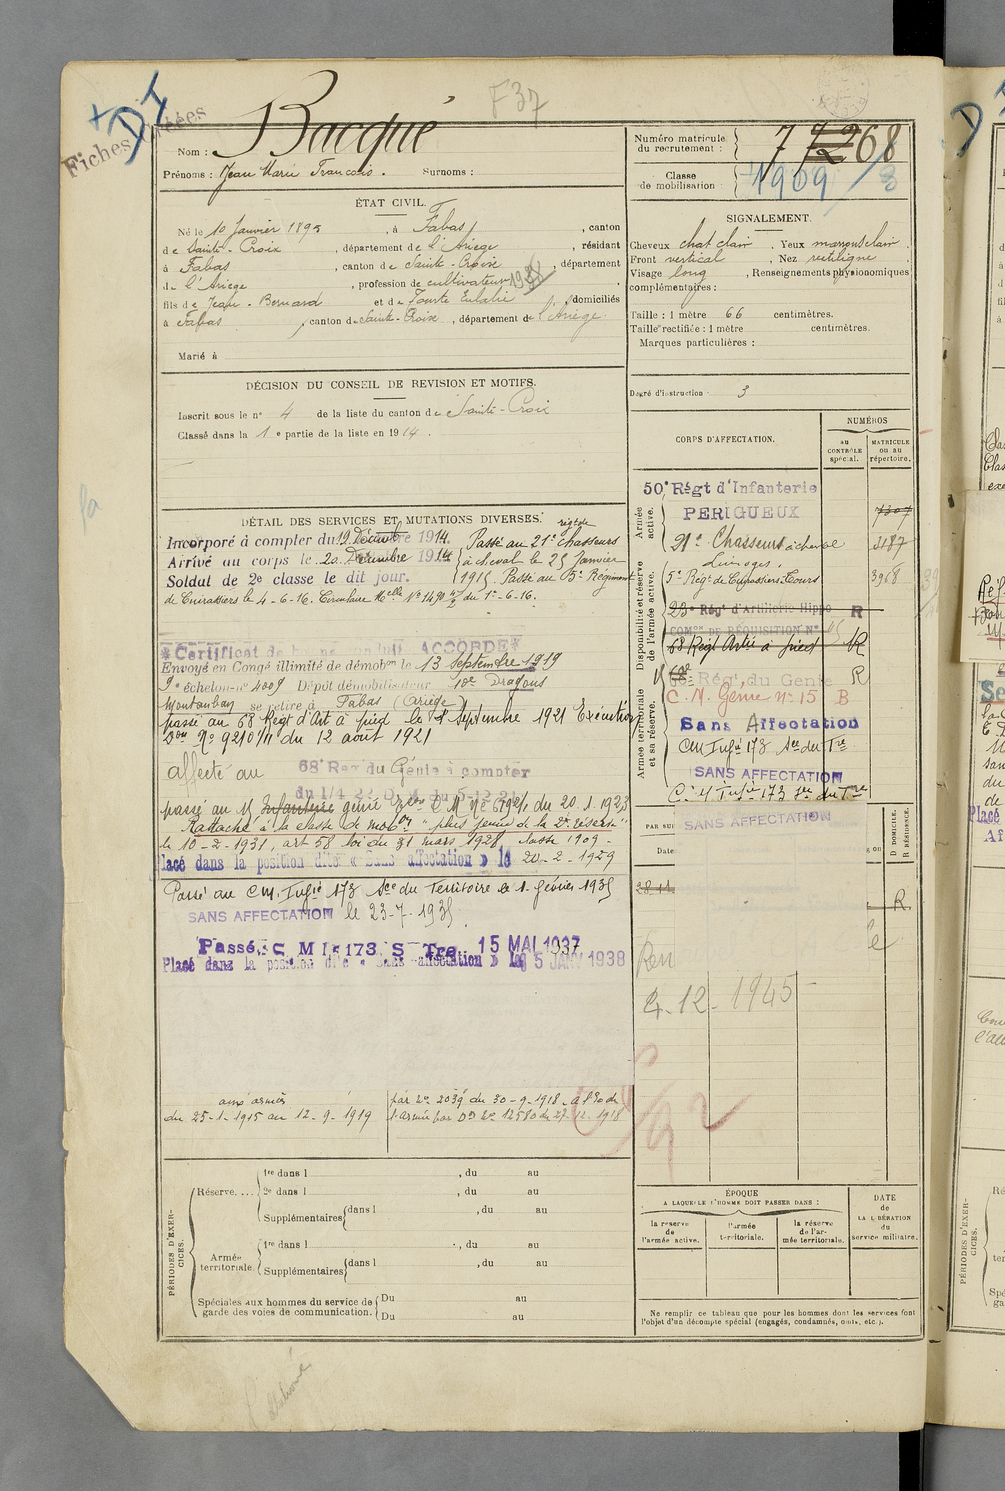 F37
+ DI
Fiches
Nom : Bacqué
Prénoms : Jean Marie Francois. Surnoms :
Numéro matricule du recrutement : 7 268
Classe de mobilisation : 1909 / 8
ÉTAT CIVIL.
Né le 10 Janvier 1895, à Fabas, canton
de Sainte-Croix, département de l'Ariège, résidant
à Fabas, canton de Sainte-Croix, département
de l'Ariège, profession de cultivateur
fils de Jean-Bernard et de Eulalie domiciliés
à Fabas, canton de Sainte-Croix, département de l'Ariège.
Marié à
SIGNALEMENT.
Cheveux chat clair, Yeux marrons clair,
Front vertical, Nez rectiligne,
Visage long, Renseignements physionomiques
complémentaires :
Taille : 1 mètre 66 centimètres.
Taille rectifiée : 1 mètre centimètres.
Marques particulières :
Degré d'instruction : 3
DÉCISION DU CONSEIL DE REVISION ET MOTIFS.
Inscrit sous le n° 4 de la liste du canton de Sainte-Croix
Classé dans la 1e partie de la liste en 1914.
DÉTAIL DES SERVICES ET MUTATIONS DIVERSES.
Incorporé à compter du 19 Décembre 1914. Passé au 21e régt de chasseurs
Arrivé au corps le 20 Décembre 1914 à cheval le 25 Janvier
Soldat de 2e classe le dit jour. 1915. Passé au 5e Régiment
de Cuirassiers le 4-6-16. Circulaire Melle N° 1490 du 1-6-16.
*Certificat de bonne conduite ACCORDÉ*
Envoyé en Congé illimité de démobon le 13 Septembre 1919
9e échelon n° 4009 Dépôt démobilisateur 10e Dragons
Montauban se retire à Fabas (Ariège)
passé au 68 Régt d'Art à pied le 1 Septembre 1921 Exécution
Don N° 9210/11 du 12 août 1921
affecté au 68e Reg du Génie à compter
du 1/4 22
passé au génie du 20.1.1923
Rattaché à la classe de mobon "plus jeune de la 2e réserve"
le 10-2-1931, art 58 loi du 31 mars 1928 classe 1909-
lacé dans la position dite « Sans affectation » le 20-2-1929
Passé au C.M. Infie 173 Son du Territoire le 1 février 1935
SANS AFFECTATION le 23-7-1935
Passé C M I 173 S Tre 15 MAI 1937
Placé dans la position dite « Sans affectation » le 5 JANV 1938
aux armées
du 25-1-1915 au 12-9-1919
CORPS D'AFFECTATION.
NUMÉROS
au CONTRÔLE spécial.
MATRICULE ou au répertoire.
Armée active.
50e Régt d'Infanterie
PERIGUEUX
7307
21e Chasseurs à cheval 4187
Limoges.
Disponibilité et réserve de l'armée active.
5e Régt de Cuirassiers Tours 3968
23e Régt d'Artillerie Hippo R
COMon DE RÉQUISITION N°
68 Régt Artie à pied R
68e Régt. du Genie R
C.M. Génie n° 15 B
Armée territoriale et sa réserve.
Sans Affectation
CM Infie 173 Son du Tre
SANS AFFECTATION
C.M Infie 173 Son du Tre
SANS AFFECTATION
PAR SUI
Date
D DOMICILE.
R RÉSIDENCE.
R
4-12-1945
ÉPOQUE
A LAQUELLE L'HOMME DOIT PASSER DANS :
la réserve de l'armée active.
l'armée territoriale.
la réserve de l'armée territoriale.
DATE de LA LIBÉRATION du service militaire.
Ne remplir ce tableau que pour les hommes dont les services font
l'objet d'un décompte spécial (engagés, condamnés, omis, etc.).
PÉRIODES D'EXERCICES.
Réserve.... 1re dans l , du au
2e dans l , du au
Supplémentaires dans l , du au
Armée territoriale. 1re dans l , du au
Supplémentaires dans l , du au
Spéciales aux hommes du service de garde des voies de communication. Du au
Du au